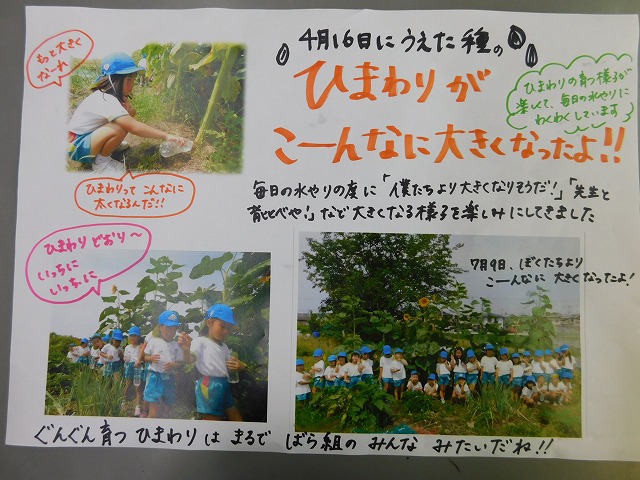 もっと大きく
なーれ
4月16日にうえた種の
ひまわりが
こーんなに大きくなったよ!!
ひまわりの育つ様子が
楽しくて、毎日の水やりに
わくわくしています
ひまわりって こんなに
太くなるんだ!!
毎日の水やりの度に「僕たちより大きくなりそうだ!」「先生と
背くらべや!」など大きくなる様子を楽しみにしてきました
ひまわり どおり〜
いっちに
いっちに
7月9日、ぼくたちより
こーんなに 大きくなったよ!
ぐんぐん育つ ひまわり は まるで ばら組の みんな みたいだね!!